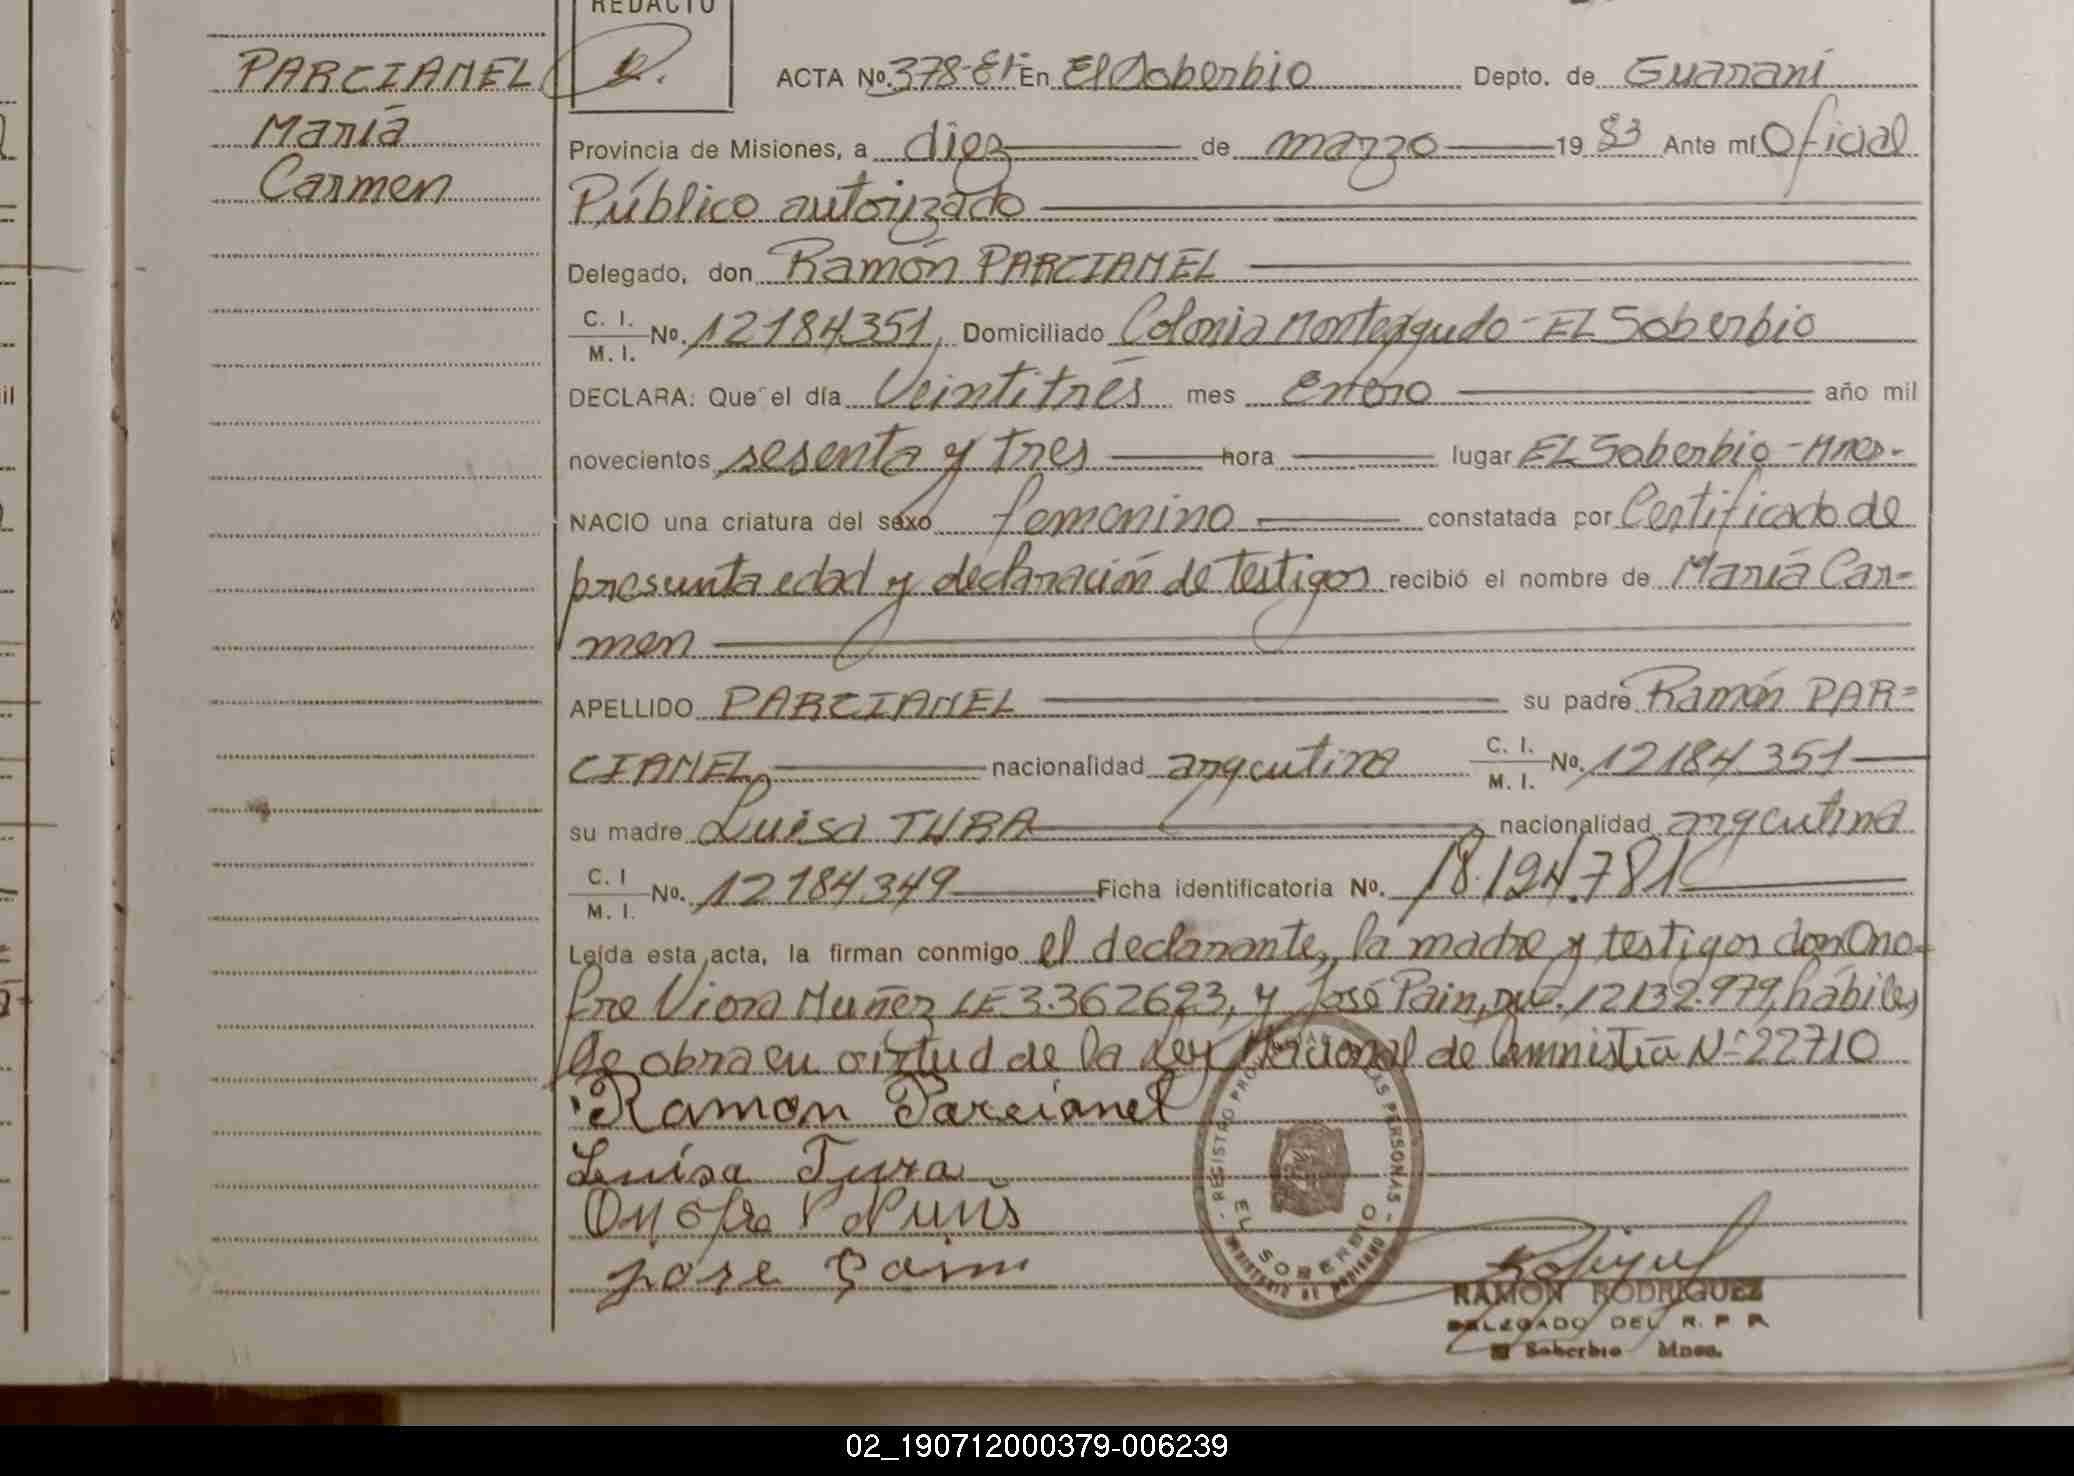 REDACTO
PARCIANEL
María
Carmen
ACTA Nº. 378- En El Soberbio Depto. de Guaraní
Provincia de Misiones, a diez de marzo 19 83 Ante mí Oficial
Público autorizado
Delegado, don Ramón PARCIANEL
C. I.
M. I. Nº. 12184351, Domiciliado Colonia Monteagudo - EL Soberbio
DECLARA: Que el día Veintitrés mes Enero año mil
novecientos sesenta y tres hora lugar EL Soberbio - Mnes.
NACIO una criatura del sexo femenino constatada por Certificado de
presunta edad y declaración de testigos recibió el nombre de María Car=
men
APELLIDO PARCIANEL su padre Ramón PAR=
CIANEL, nacionalidad argentina C. I.
M. I. Nº. 12184351
su madre Luisa TURA nacionalidad argentina
C. I
M. I. Nº. 12184349 Ficha identificatoria Nº. 18.124.781
Leída esta acta, la firman conmigo el declarante, la madre y testigos don Ono=
fre Viera Muñez LE 3.362623, y José Pain, 12132.979, hábiles
Se obra en virtud de la Ley Nacional de amnistía Nº 22710
Ramon Parcianel
Luisa Tura
Onofre
jose Pain
REGISTRO PERSONAS
EL SOBERBIO
MINISTERIO DE GOBIERNO
RAMON RODRIGUEZ
DELEGADO DEL R. P. P.
El Soberbio Mnes.
02_190712000379-006239